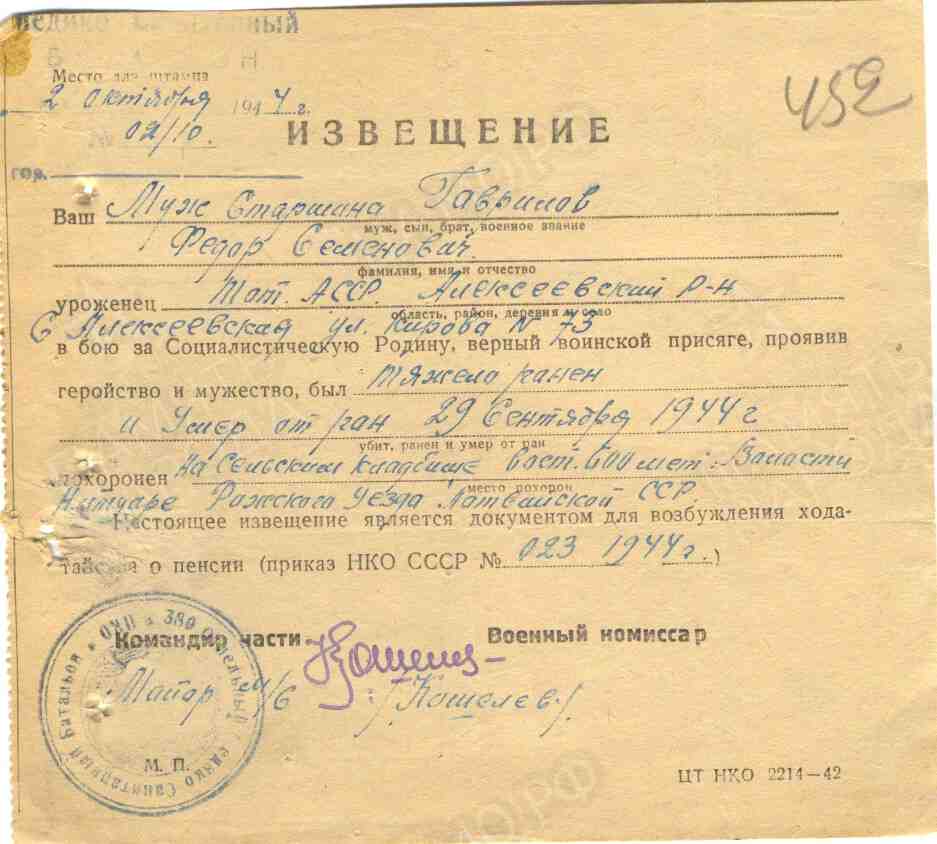 МЕДИКО САНИТАРНЫЙ
Место для штампа
2 октября 1944 г.
452
№ 02/10.
ИЗВЕЩЕНИЕ
гор.
Ваш Муж Старшина Гаврилов
муж, сын, брат, военное звание
Федор Семенович.
фамилия, имя и отчество
уроженец Тат. АССР. Алексеевский Р-н
область, район, деревня и село
с Алексеевская ул. Кирова № 73
в бою за Социалистическую Родину, верный воинской присяге, проявив
геройство и мужество, был тяжело ранен
и Умер от ран 29 Сентября 1944 г
убит, ранен и умер от ран
похоронен на Сельским кладбище Вост. 600 мет. Валасти
место похорон
Нитуаре Рижского Уезда Латвийской ССР
Настоящее извещение является документом для возбуждения хода-
тайства о пенсии (приказ НКО СССР № 023 1944 г.)
Командир части
Военный комиссар
Майор м/с
/Кошелев/
380 Отдельный Медико Санитарный Батальон НКО
М. П.
ЦТ НКО 2214—42